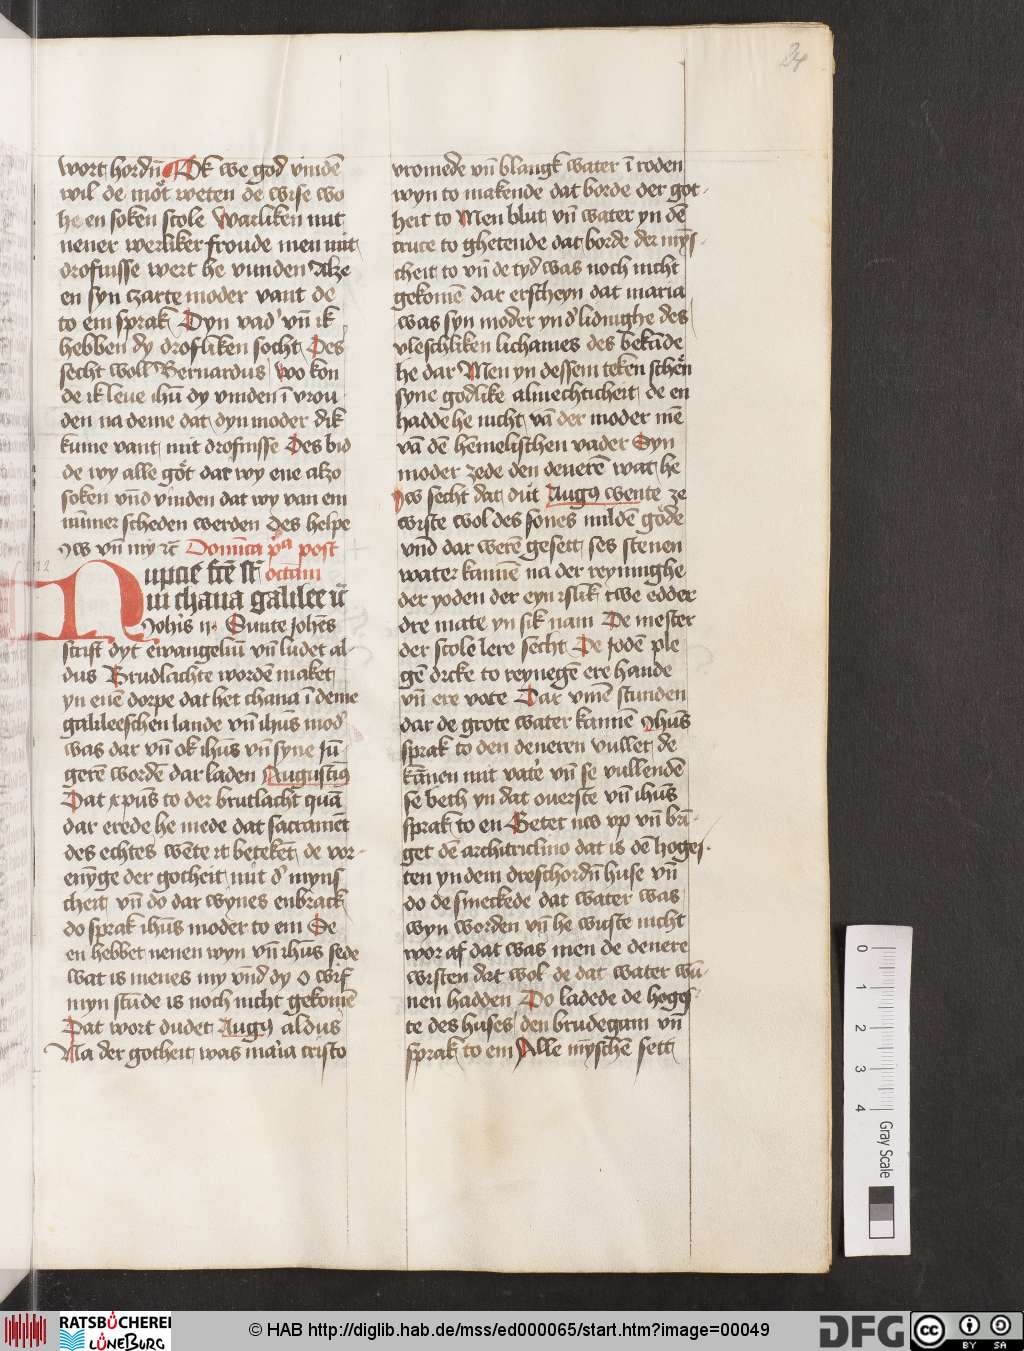 24
wort hordn̄ Ok we god vindē
wil de mot weten de wise wo
he en soken scole Warliken mit
nener werliker froude men mit
drofnisse wert he vunden Alze
en syn czarte moder vant de
to em sprak Dyn vad' vn̄ ik
hebben dy drofliken socht Des
secht woll Bernardus wo kon
de ik leue ihū dy vinden ī vrou
den na deme dat dyn moder dik
kume vant mit drofnisse Des bid
de wy alle got dat wy ene alzo
soken vn̄d vinden dat wy van em
nūmer scheden werden Des helpe
Iw vn̄ my rc̄ Domīca pa post
upcie fc̄e st̄ octam
in chana galilee rc̄
Johīs ij Sunte Johēs
scrift dyt ewangeliū vn̄ ludet al-
dus Brudlachte wordē maket
yn enē dorpe dat het chana ī deme
galileeschen lande vn̄ ihūs mod'
was dar vn̄ ok ihūs vn̄ syne Iū
gerē wordē dar laden Augustin9
Dat xpūs to der brutlacht quā
dar erede he mede dat sacramēt
des echtes wēte it beteket de vor-
enyge der gotheit mit d' myns
cheit vn̄ do dar wynes enbrack
do sprak ihūs moder to em De
en hebbet nenen wyn vn̄ ihūs sede
wat is menes my vn̄d dy o wif
myn stūde is noch nicht gekomē
Dat wort dudet Aug9 aldus
Na der gotheit was maria cristo
vromede vn̄ blangk water ī roden
wyn to makende dat borde der got-
heit to Men blut vn̄ water yn dē
cruce to ghetende dat borde der mȳs-
cheit to vn̄ de tyd was noch nicht
gekomē dar erscheyn dat maria
was syn moder yn d' lidnighe des
vleschliken lichames des bekāde
he dar Men yn dessem teken schen
syne godlike almechticheit de en
hadde he nicht vā der moder mē
vā dē hemelischen vader Syn
moder zede den denerē wat he
Iw secht dat dut Aug9 wente ze
wiste wol des sones mildē gode
vnd dar werē gesett ses stenen
water kannē na der reynnighe
der yoden der eyn islik twe edder
dre mate yn sik nam De mester
der scole lere secht De Jodē ple
gē dicke to reynegē ere hande
vn̄ ere vote Dar vmē stunden
dar de grote water kannē Ihūs
sprak to den deneren vullet de
kānen mit wate' vn̄ se vullendē
se beth yn dat ouerste vn̄ ihūs
sprak to en Getet nw vp vn̄ brī-
get dē architriclino dat is dē hoges-
ten yn dem dreschordn̄ huse vn̄
do de smeckede dat water was
wyn worden vn̄ he wuste nicht
wor af dat was men de denere
wisten dat wol de dat water wū-
nen hadden Do ladede de hoges-
te des huses den brudegam vn̄
sprak to em Alle mȳschē sett
0 1 2 3 4
Gray Scale
RATSBÜCHEREI
LÜNEBURG
© HAB http://diglib.hab.de/mss/ed000065/start.htm?image=00049
DFG
cc BY SA